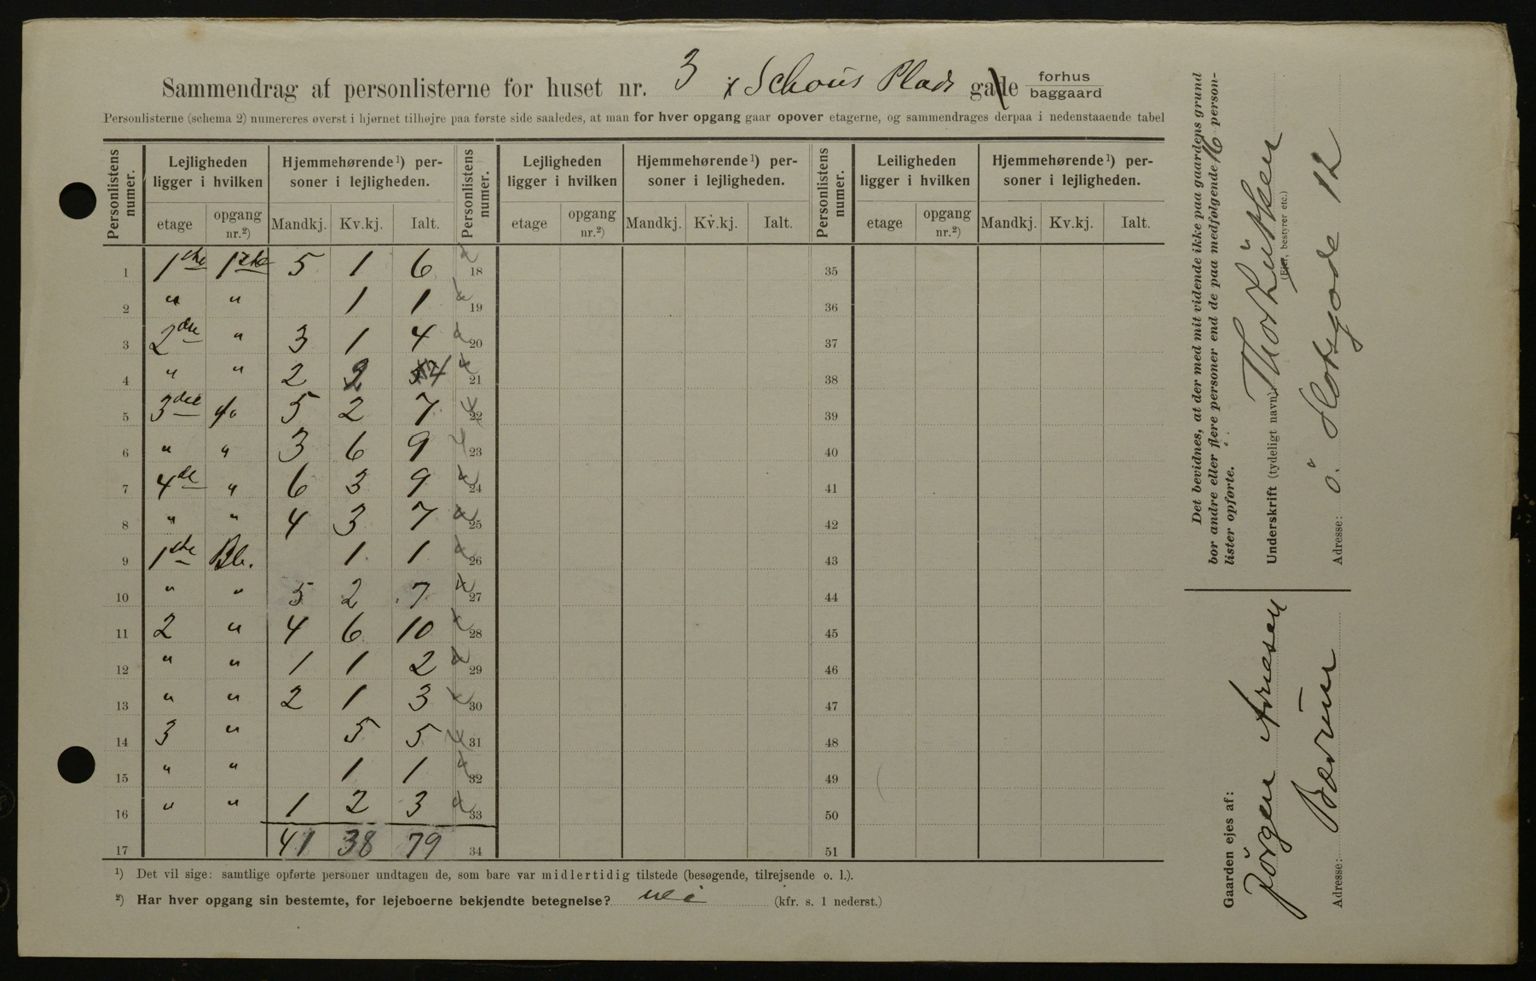 Sammendrag af personlisterne for huset nr. 3 Schous Plads gade forhus baggaard
Personlisterne (schema 2) numereres øverst i hjørnet tilhøjre paa første side saaledes, at man for hver opgang gaar opover etagerne, og sammendrages derpaa i nedenstaaende tabel
Personlistens numer. Lejligheden ligger i hvilken Hjemmehørende¹) personer i lejligheden. Personlistens numer. Lejligheden ligger i hvilken Hjemmehørende¹) personer i lejligheden. Personlistens numer. Leiligheden ligger i hvilken Hjemmehørende¹) personer i lejligheden.
etage opgang nr.²) Mandkj. Kv.kj. Ialt. etage opgang nr.²) Mandkj. Kv.kj. Ialt. etage opgang nr.²) Mandkj. Kv.kj. Ialt.
1 1ste 1ste 5 1 6 18 35
2 " " 1 1 19 36
3 2den " 3 1 4 20 37
4 " " 2 2 4 21 38
5 3die do 5 2 7 22 39
6 " " 3 6 9 23 40
7 4de " 6 3 9 24 41
8 " " 4 3 7 25 42
9 1ste Bb. 1 1 26 43
10 " " 5 2 7 27 44
11 2 " 4 6 10 28 45
12 " " 1 1 2 29 46
13 " " 2 1 3 30 47
14 3 " 5 5 31 48
15 " " 1 1 32 49
16 " " 1 2 3 33 50
17 41 38 79 34 51
¹) Det vil sige: samtlige opførte personer undtagen de, som bare var midlertidig tilstede (besøgende, tilrejsende o. l.).
²) Har hver opgang sin bestemte, for lejeboerne bekjendte betegnelse? nei (kfr. s. 1 nederst.)
Det bevidnes, at der med mit vidende ikke paa gaardens grund
bor andre eller flere personer end de paa medfølgende 16 person-
lister opførte.
Underskrift (tydeligt navn): Thor
(Eier, bestyrer etc.)
Adresse: ø. Slotsgade 12
Gaarden ejes af:
Jørgen
Adresse: Bærum